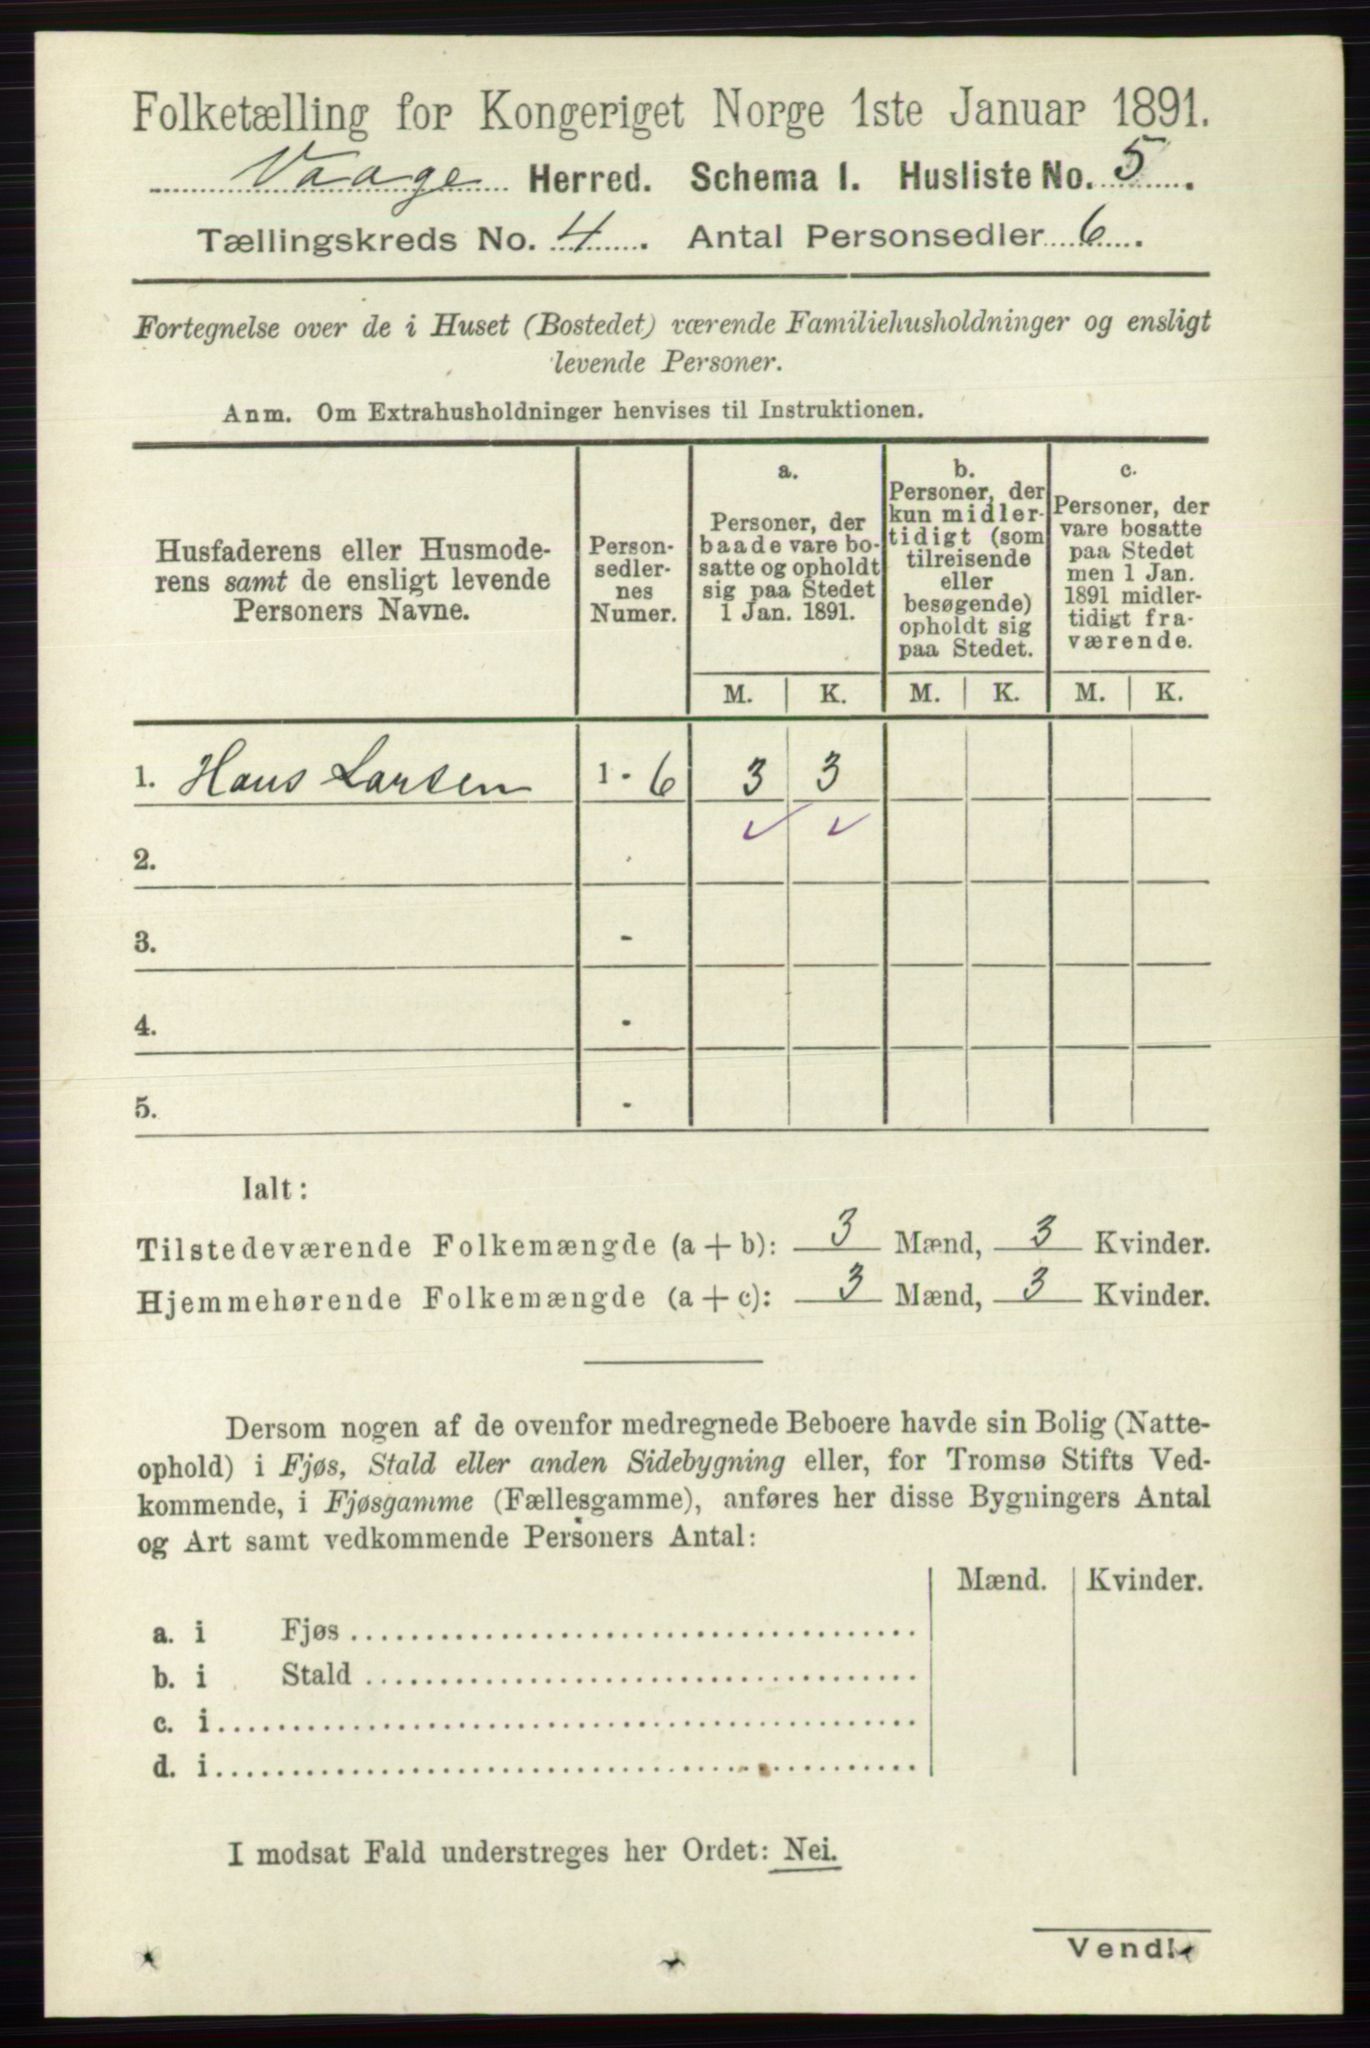 Folketælling for Kongeriget Norge 1ste Januar 1891.
Vaage Herred. Schema 1. Husliste No. 5.
Tællingskreds No. 4. Antal Personsedler 6.
Fortegnelse over de i Huset (Bostedet) værende Familiehusholdninger og ensligt
levende Personer.
Anm. Om Extrahusholdninger henvises til Instruktionen.
Husfaderens eller Husmode-
rens samt de ensligt levende
Personers Navne.
Person-
sedler-
nes
Numer.
a.
Personer, der
baade vare bo-
satte og opholdt
sig paa Stedet
1 Jan. 1891.
b.
Personer, der
kun midler-
tidigt (som
tilreisende
eller
besøgende)
opholdt sig
paa Stedet.
c.
Personer, der
vare bosatte
paa Stedet
men 1 Jan.
1891 midler-
tidigt fra-
værende.
M. K. M. K. M. K.
1. Hans Larsen 1 - 6 3 3
2.
3. -
4. -
5. -
Ialt:
Tilstedeværende Folkemængde (a + b): 3 Mænd, 3 Kvinder.
Hjemmehørende Folkemængde (a + c): 3 Mænd, 3 Kvinder.
Dersom nogen af de ovenfor medregnede Beboere havde sin Bolig (Natte-
ophold) i Fjøs, Stald eller anden Sidebygning eller, for Tromsø Stifts Ved-
kommende, i Fjøsgamme (Fællesgamme), anføres her disse Bygningers Antal
og Art samt vedkommende Personers Antal:
Mænd. Kvinder.
a. i Fjøs
b. i Stald
c. i
d. i
I modsat Fald understreges her Ordet: Nei.
Vend!